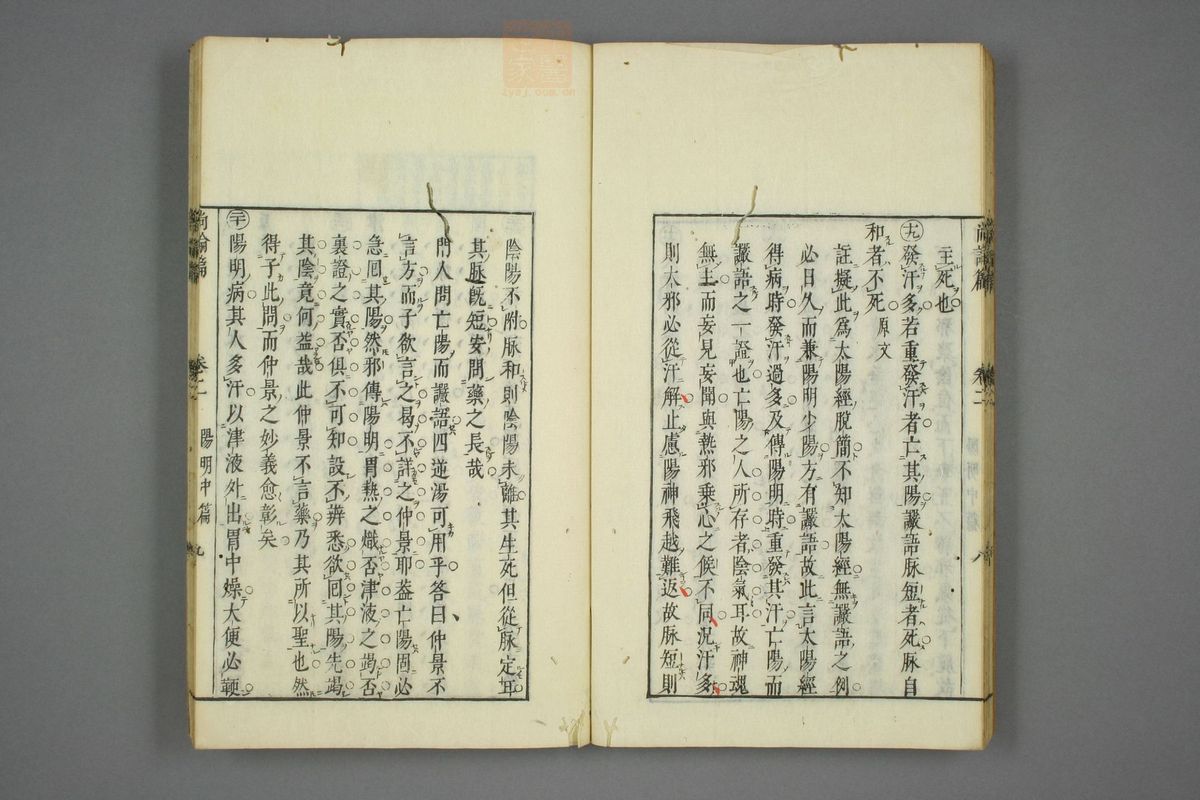 主死也
十九 發汗多若重發汗者亡其陽讝語脉短者死脉自
和者不死 原文
註擬此爲太陽經脫簡不知太陽經無讝語之例
必日久而兼陽明少陽方有讝語故此言太陽經
得病時發汗過多及傳陽明時重發其汗亡陽而
讝語之一證也亡陽之人所存者陰氣耳故神魂
無主而妄見妄聞與熱邪乗心之候不同況汗多
則大邪必從汗解止慮陽神飛越難返故脉短則
陰陽不附脉和則陰陽未離其生死但從脉定耳
其脉旣短安問藥之長哉
門人問亡陽而讝語四逆湯可用乎答曰仲景不
言方而子欲言之曷不詳之仲景耶葢亡陽固必
急囘其陽然邪傳陽明胃熱之熾否津液之竭否
裏證之實否俱不可知設不辨悉欲囘其陽先竭
其陰竟何益哉此仲景不言藥乃其所以聖也然
得子此問而仲景之妙義愈彰矣
二十 陽明病其人多汗以津液外出胃中燥大便必鞕
尚論篇 卷二 陽明中篇 九